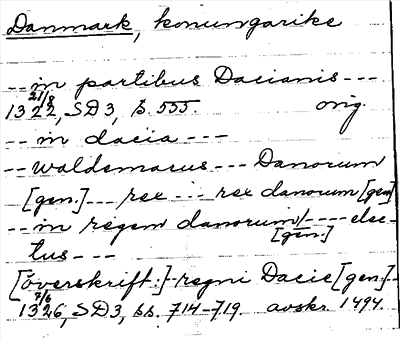 Danmark, konungarike
-- in partibus Dacianis ---
21/8
1322, SD3, s. 555. orig.
-- in dacia ---
-- waldemarus --- Danorum
[gen.] --- rex --- rex danorum [gen]
-- in regem danorum/---- elec-
[gen.]
tus ---
[överskrift:]- regni Dacie [gen.]--
7/6
1326, SD3, ss. 714-719. avskr. 1494.